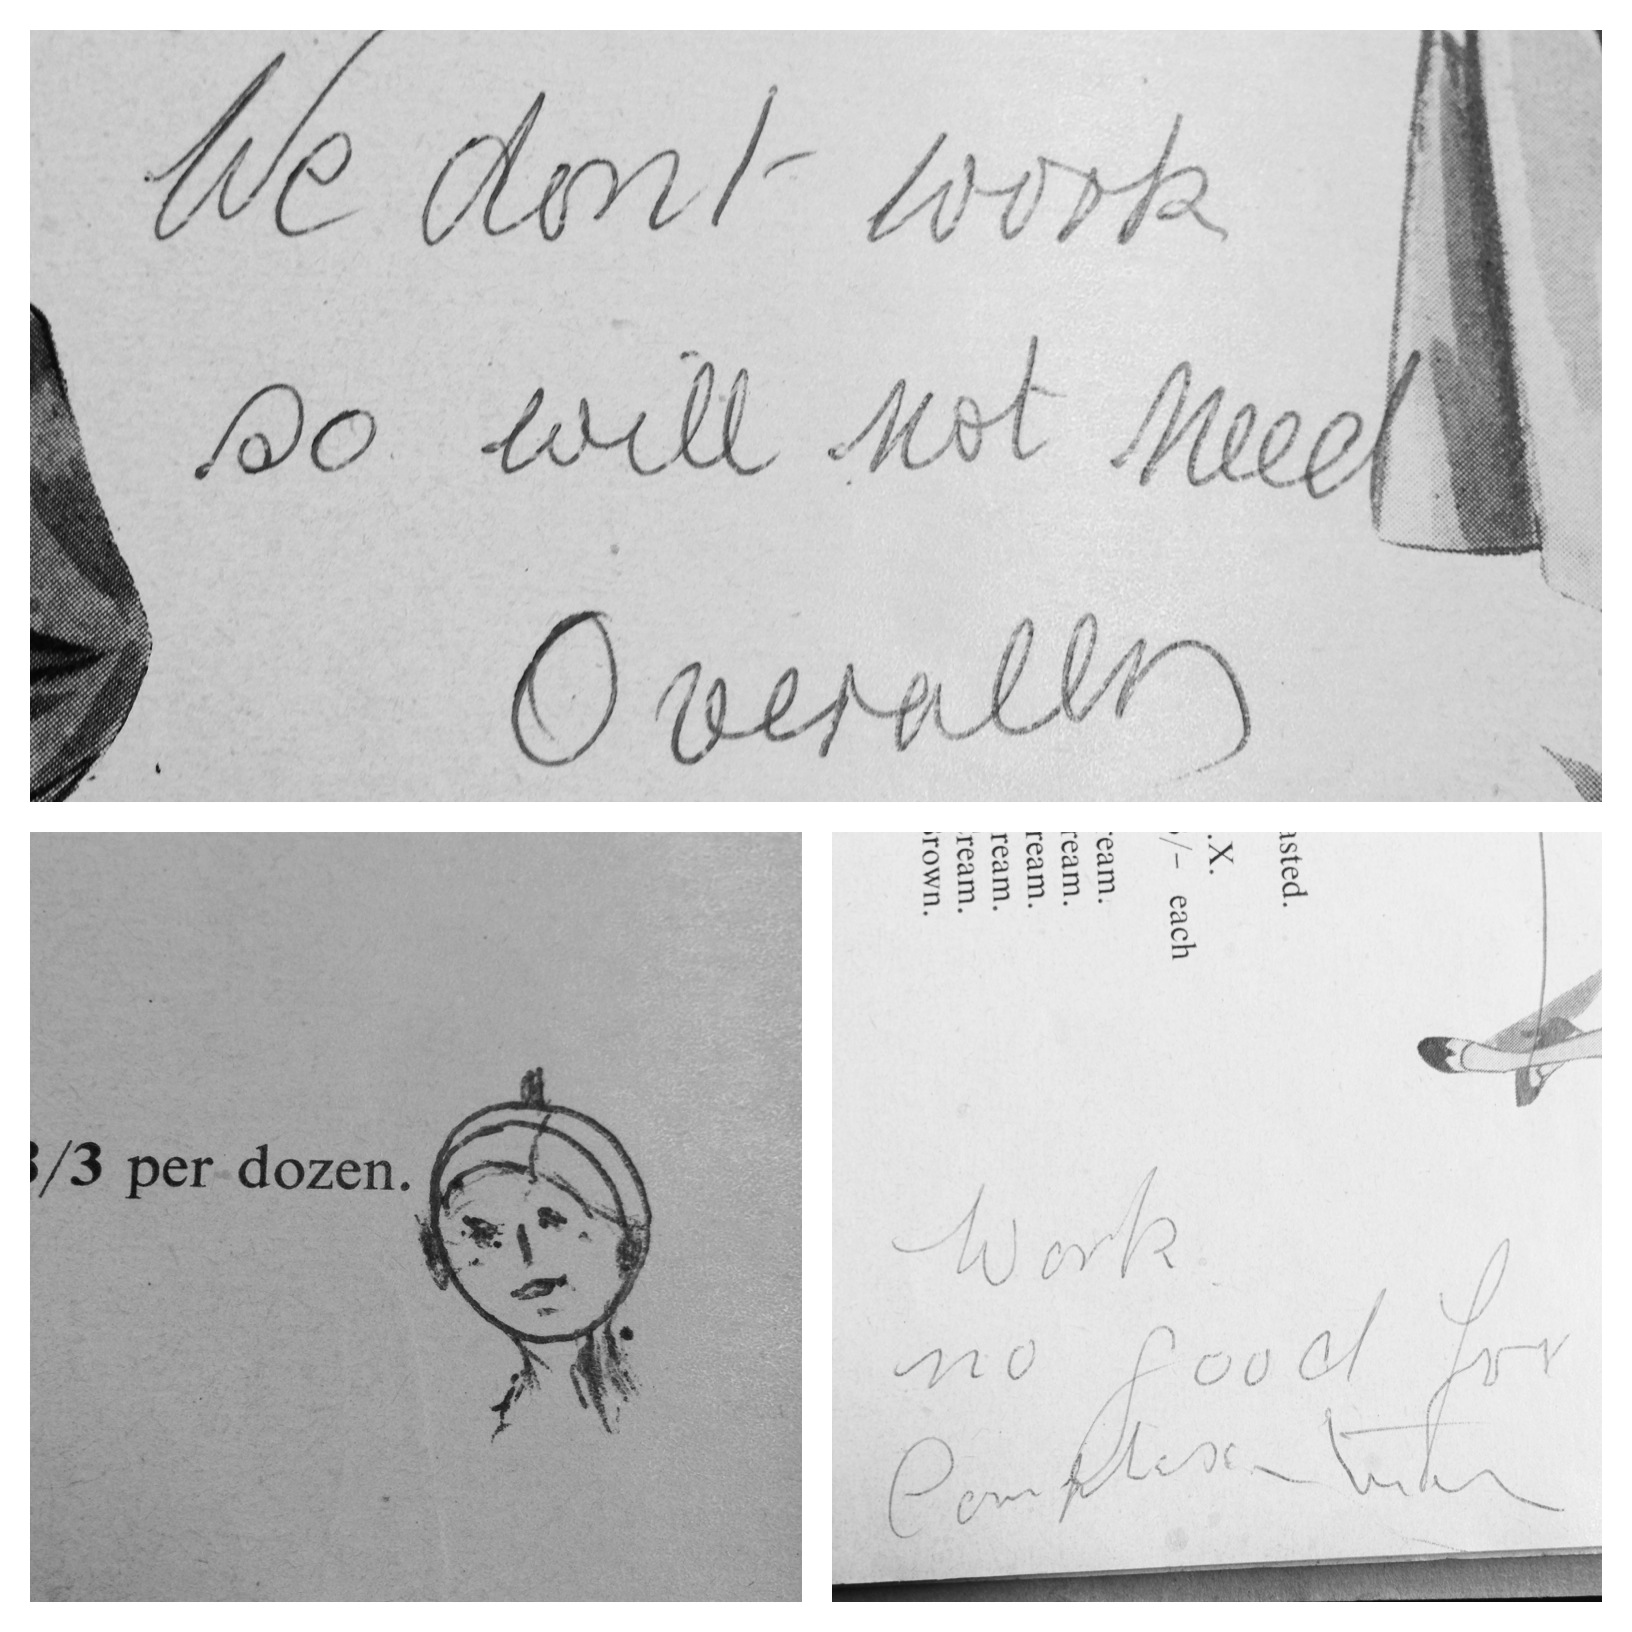 We dont work
so will not need
Overalls
3/3 per dozen.
asted.
.X.
/- each
ream.
ream.
ream.
ream.
ream.
rown.
Work
no good for